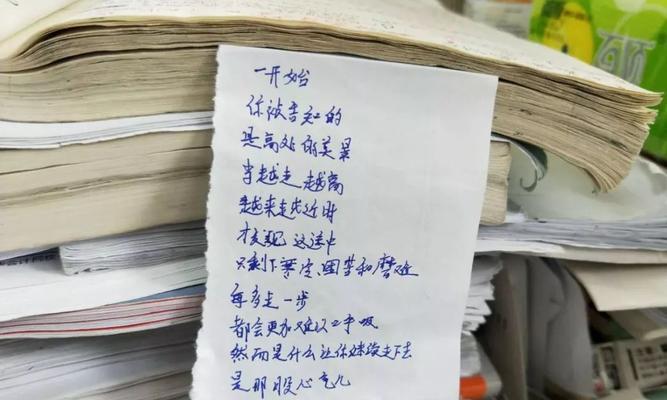 一开始
你被告知的
是高处的美景
当越走越高
越来越近时
才发现 这途中
只剩下寒冷、困苦和磨难
每多走一步
都会更加难以呼吸
然而是什么让你继续走下去
是那股心气儿